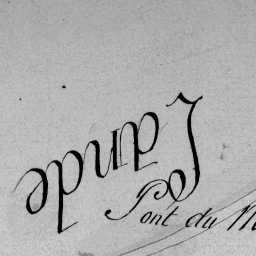 Lande
Pont du M